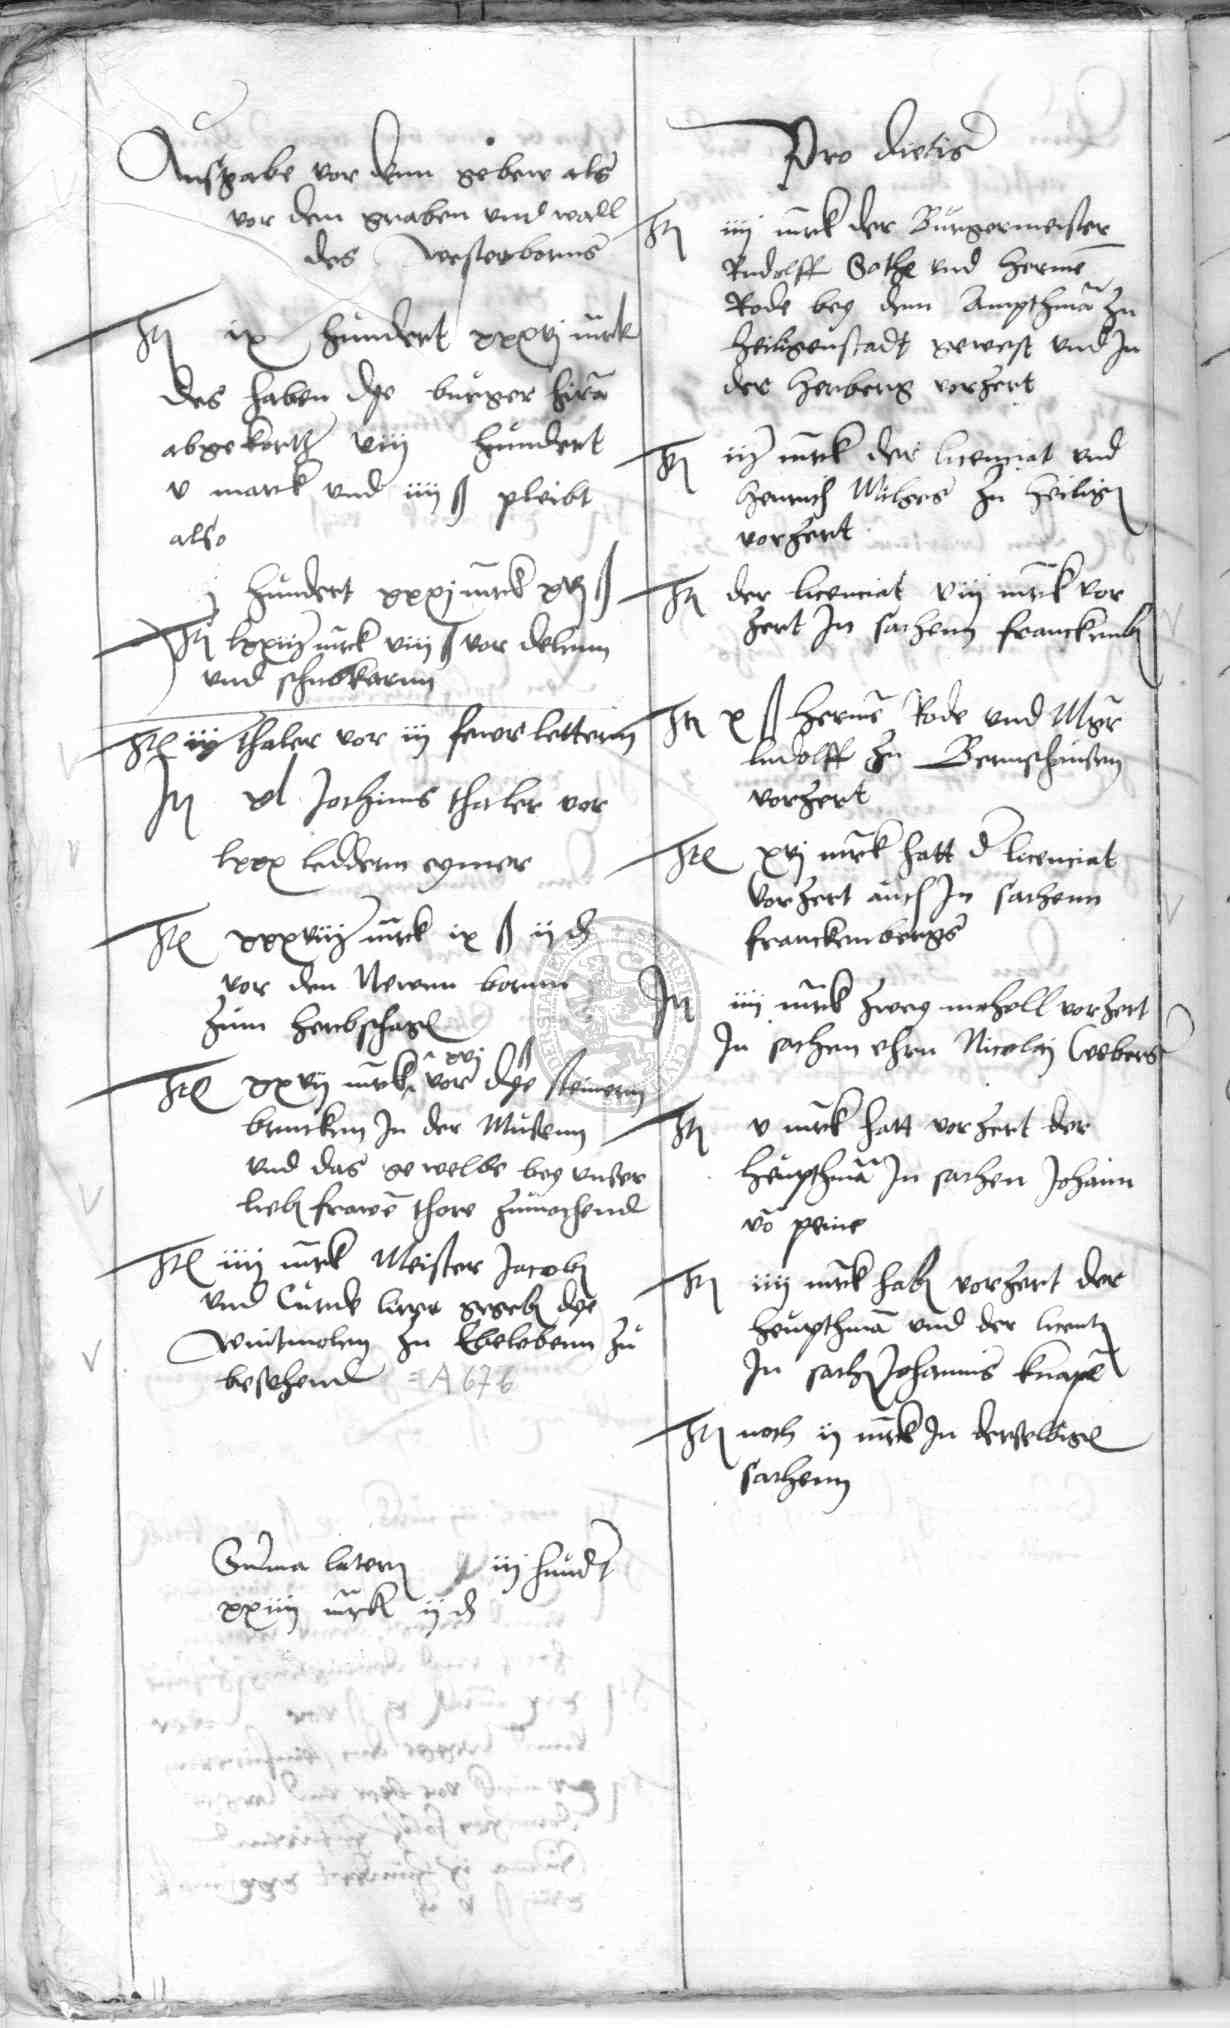 Ausgabe vor denn gebew als
vor dem graben vnd wall
des Westerborns
Itē ix hundert xxxvj mrck
des haben dye burger hirā
abgekortz viij hundert
v marck vnd iiij ß pleibt
also
j hundert xxxj mrck xvj ß
Itē lxxiij mrck viij ß vor delenn
vnd schubkarnn
Itē iij thaler vor iij fewr lettern
Itē xl Jochims thaler vor
lxxx leddern eymer
Itē xxxviij mrck ix ß ij d
vor den Newen bornn
zum
Itē xxvij mrck xvj ß vor dye steinern
brucken In der Musenn
vnd das gewelbe bey vnser
lieb frawē thore zumachend
Itē iiij mrck Meister Jacob
vnd Curde gegeb dye
Wintmolen zu Ebelebenn zu
besehend = A 676
Suma lateris iij hundt
xxiiij mrck ij d
Pro dietis
Itē iiij mrck der Burgermeister
Rudolff Gothe vnd Hermē
Rode bey dem Ampthmā zu
Heiligenstadt gewest vnd In
der Herberg vorzert
Itē iij mrck der licenciat vnd
Henrich Wilges zu Heilig
vorzert
Itē der licenciat viij mrck vor
zert In sachenn franckenb
Itē x ß Hermē Rode vnd Mgr
ludolff zu Bernshausen
vorzert
Itē xvj mrck hatt d licenciat
vorzert auch In sachenn
franckenbergs
Itē iiij mrck zwey mahell vorzert
In sachen ehrn Nicolai Webers
Itē v mrck hatt vorzert der
Heupthmā In sachen Johann
vō peine
Itē iiij mrck hab vorzert der
heupthmā vnd der licent
In sach Johannis knapē
Itē noch ij mrck In derselbige
sachenn